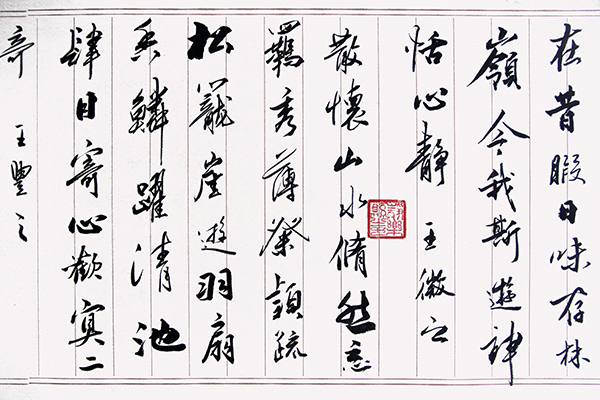 在昔暇日味存林
嶺今我斯遊神
怡心靜 王徽之
散懷山水脩然忘
羈秀薄粲穎疏
松籠崖遊羽扇
鱗躍清池
肆目寄心歡冥二
奇 王豐之